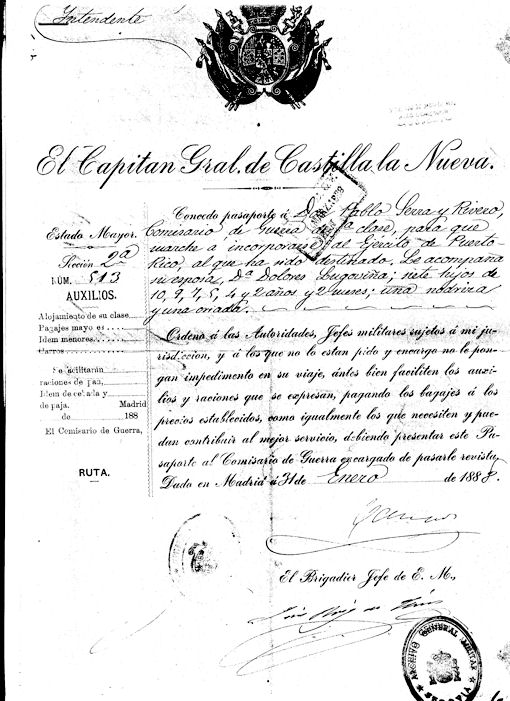 Intendente
El Capitan Gral. de Castilla la Nueva.
Estado Mayor.
Sección 2ª
NÚM. 513
AUXILIOS.
Alojamiento de su clase
Bagajes mayores
Idem menores
Carros
Se facilitarán
raciones de pan,
Idem de cebada y
de paja. Madrid
de 188
El Comisario de Guerra,
RUTA.
Concedo pasaporte á D. Pablo Serra y Revero,
Comisario de Guerra de 1ª clase, para que
marche a incorporarse al Ejército de Puerto
Rico, al que ha sido destinado. Le acompaña
su esposa, Dª Dolores siete hijos de
10, 9, 7, 5, 4 y 2 años y 2 meses; una nodriza
y una criada.
Ordeno á las Autoridades, Jefes militares sujetos á mi ju-
risdiccion, y á los que no lo estan pido y encargo no le pon-
gan impedimento en su viaje, ántes bien faciliten los auxi-
lios y raciones que se expresan, pagando los bagajes á los
precios establecidos, como igualmente los que necesiten y pue-
dan contribuir al mejor servicio, debiendo presentar este Pa-
saporte al Comisario de Guerra encargado de pasarle revista.
Dado en Madrid á 31 de Enero de 1888.
El Brigadier Jefe de E. M.,
ARCHIVO GENERAL MILITAR
SEGOVIA